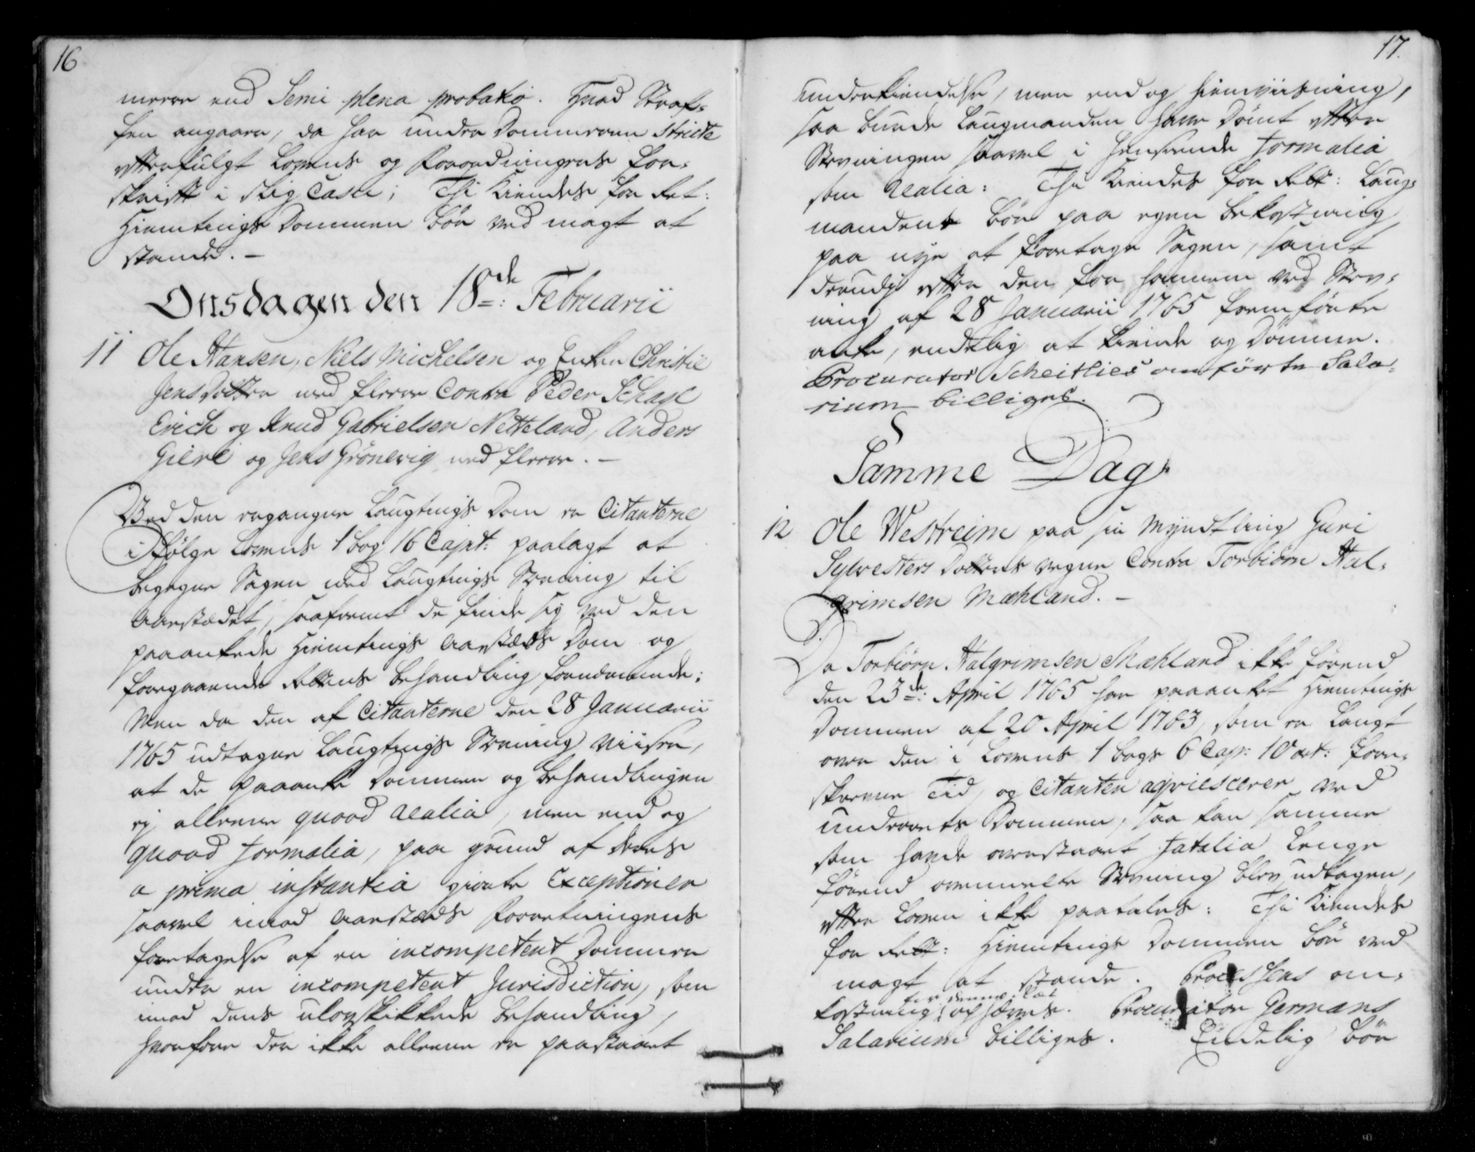 16
meere end Semi plena probatio. Hvad Straf-
fen angaaer, da har under Dommeren Stricte
efterfulgt Lovens og Forordningens for-
skrift i slig Casu; Thi Kiendes for Ret:
Hiemtings Dommen bør ved magt at
stande. –
Onsdagen den 18de: Februarii
11 Ole Hansen, Niels Michelsen og Enken Christie
Jensdotter med fleere Contra Peder
Erich og Knud Gabrielsen Netteland, Anders
Giere og Jens Grönevig med fleere. –
Ved den ergangne Laugtings Dom er Citanterne
i Følge Lovens 1 bog 16 Capt: paalagt at
begegne Sagen med Laugtings Stevning til
Aastædet, saafremt de finde sig ved den
paaankede Hiemtings Aastæds Dom og
foregaaende Rettens behandling fornærmede;
Men da den af Citanterne den 28 Januarii
1765 udtagne Laugtings Stevning viiser,
at de paaanke Dommen og behandlingen
ej alleene quoad realia, men end og
quoad formalia, paa grund af deres
a prima instantia giorte Exceptioner
saavel imod Aastæds Forretningens
foretagelse af en incompetent Dommere
under en incompetent Jurisdiction, som
imod dens ulovskikkede behandling,
hvorfore der ikke alleene er paastaaet
17.
underkiendelse, men end og hiemviisning,
saa burde Laugmanden have Dømt efter
Stevningen saavel i henseende formalia
som realia: Thi Kiendes for Rett: Laug-
manden bør paa egen bekostning
paa nye at foretage Sagen, samt
derudj efter den for hannem ved Stev-
ning af 28 Januarii 1765 fremførte
anke, endelig at kiende og Dømme.
Procurator Scheitlies anførte Sala-
rium billiges.
Samme Dag
12 Ole Westreim paa sin Myndtling Guri
Sylvesters Dotters vegne Contra Torbiörn Hal-
grimsen Mæhland. –
Da Torbiörn Halgrimsen Mæhland ikke førend
den 23de: April 1765 har paaanket Hiemtings
Dommen af 20 April 1763, som er langt
over den i Lovens 1 bogs 6 Cap: 10 art: fore-
skrevne Tid, og Citanten aqviescerer ved
underrets Dommen, saa kan samme
som havde overstaaet fatalia længe
førend ommelte Stevning blev udtagen,
efter Loven ikke paatales: Thi Kiendes
for Rett: Hiemtings Dommen bør ved
magt at stande. Processens om-
kostning for denne Ret ophæves. Procurator Germans
Salarium billiges. Endelig bør